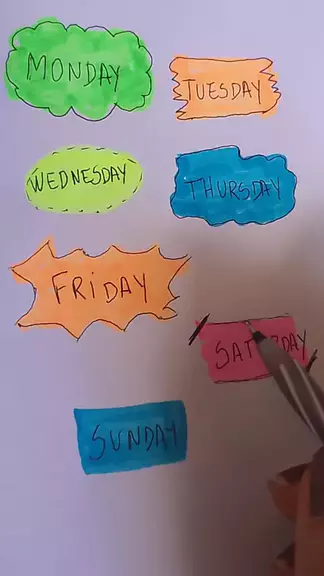 MONDAY
TUESDAY
WEDNESDAY
THURSDAY
FRiDAY
SUNDAY